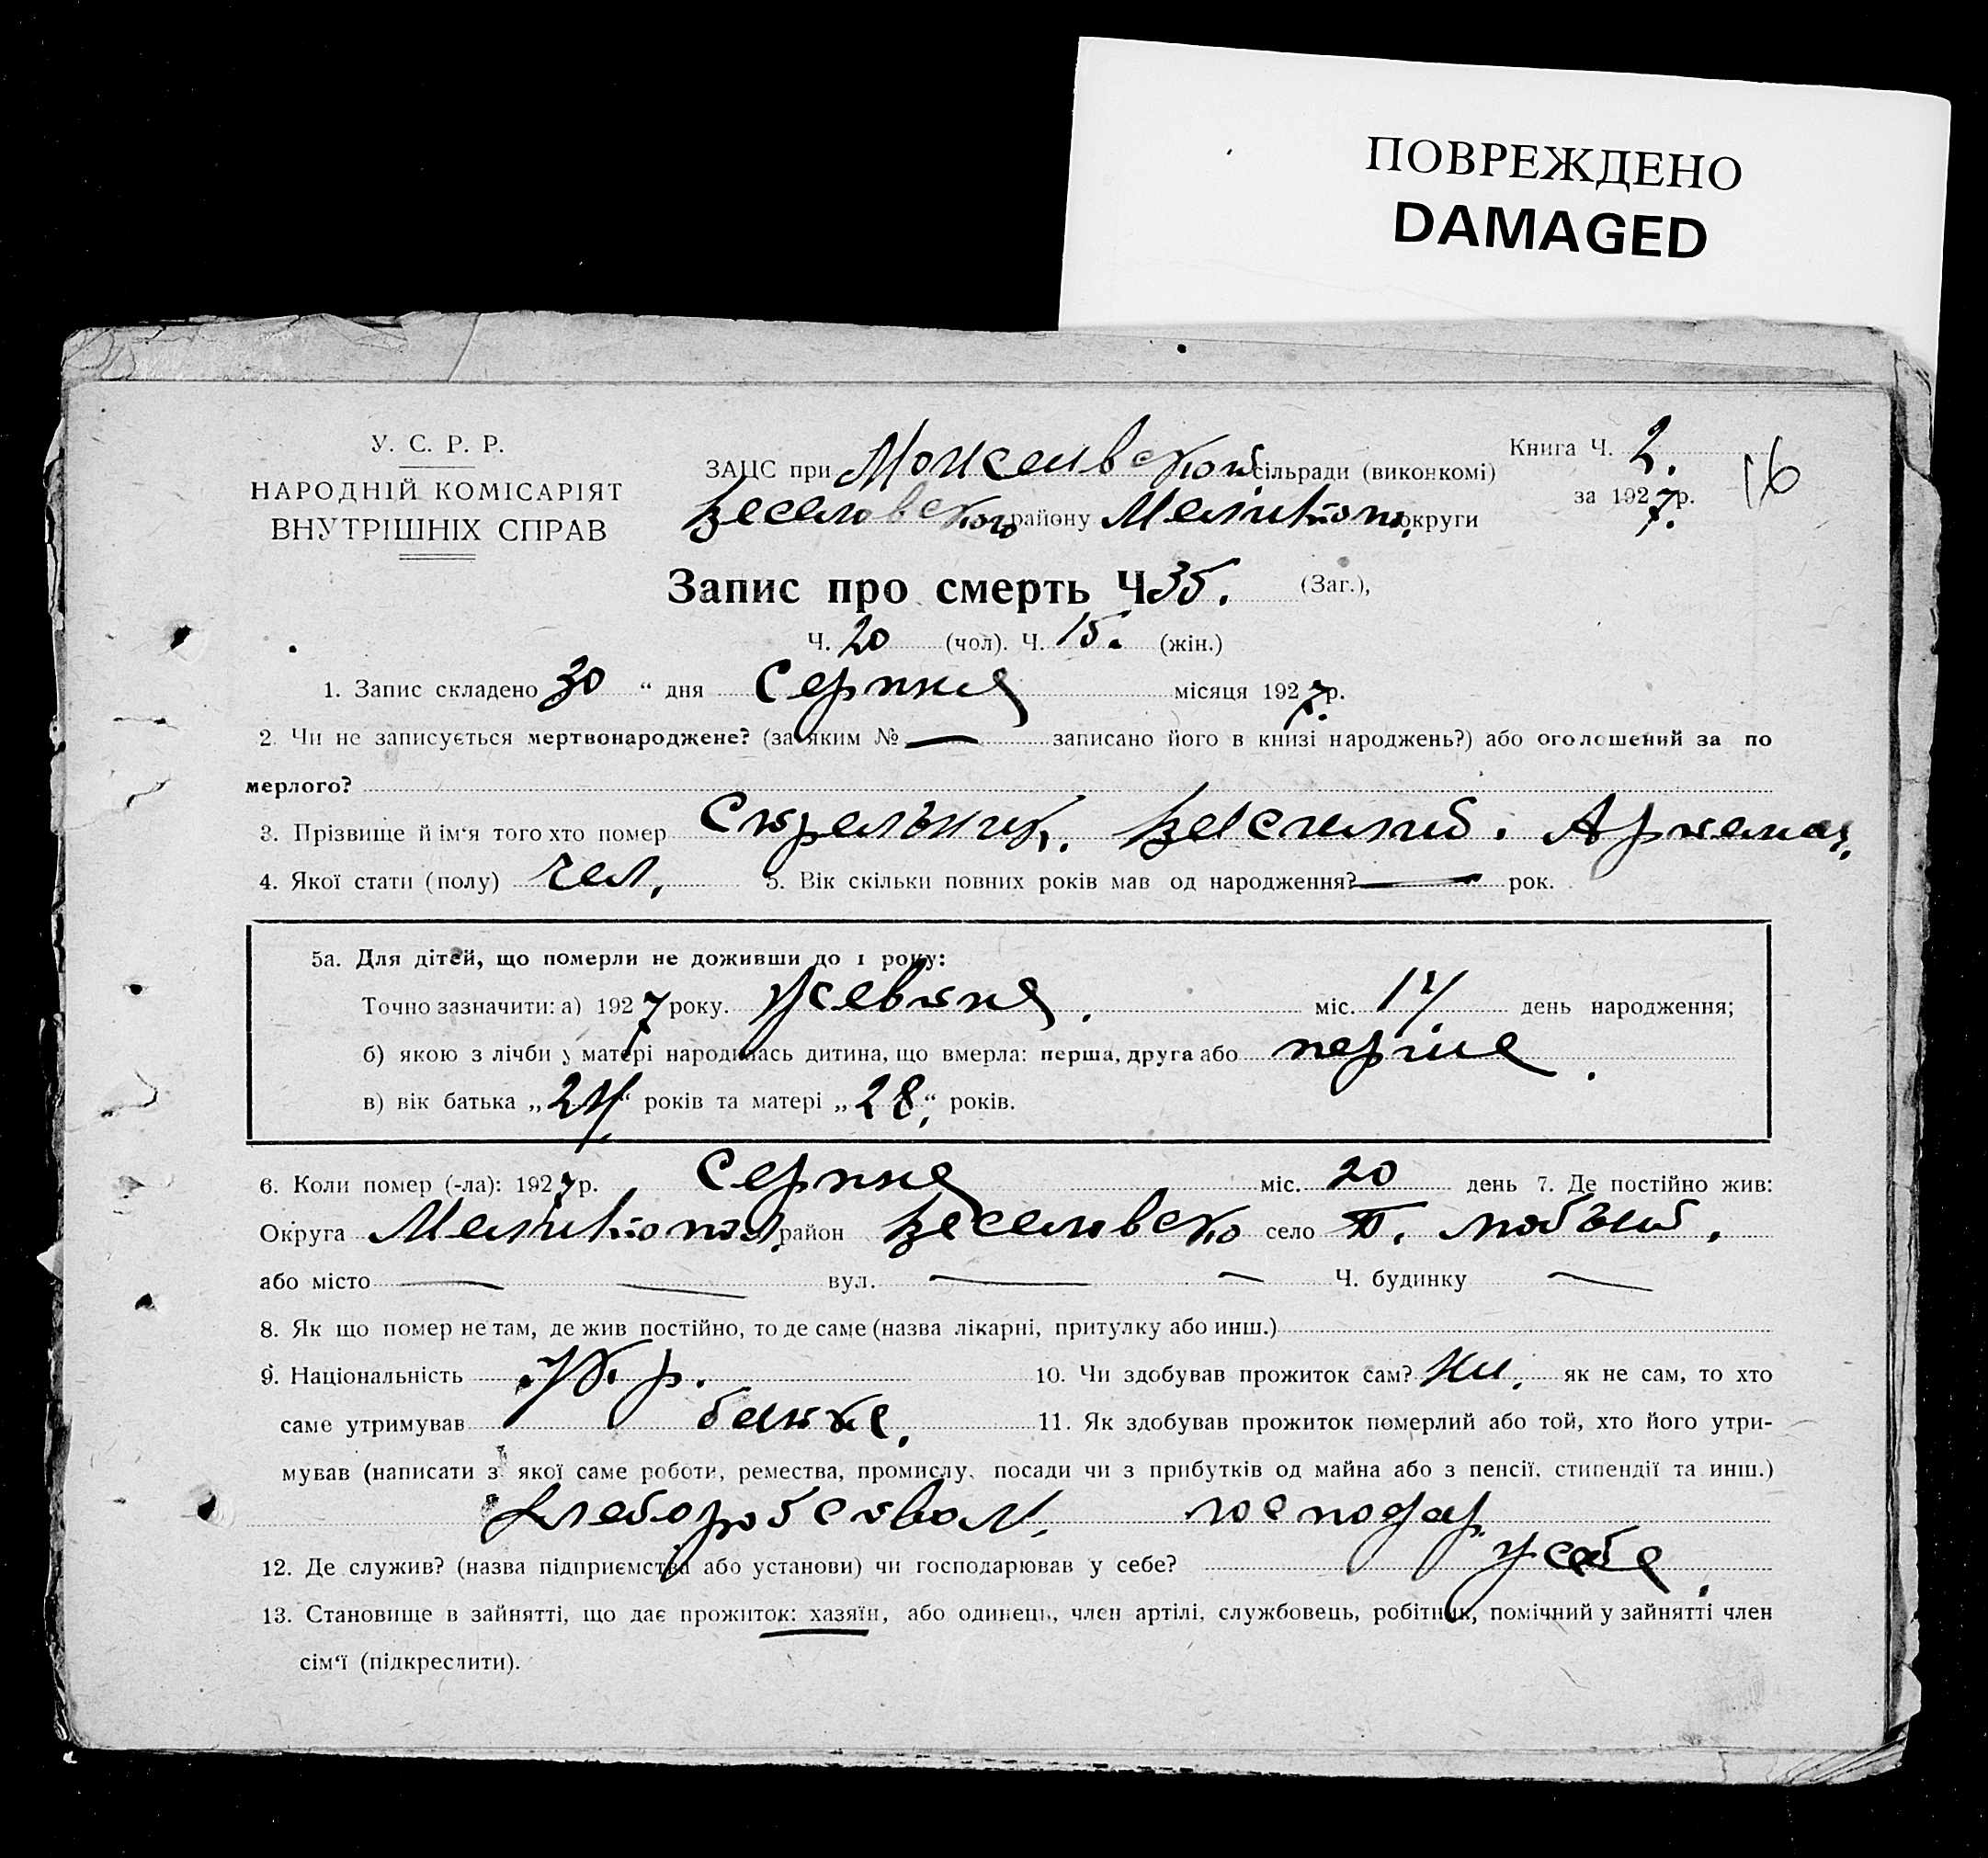 ПОВРЕЖДЕНО
DAMAGED
У. С. Р. Р.
НАРОДНІЙ КОМІСАРІЯТ
ВНУТРІШНІХ СПРАВ
ЗАЦС при сільради (виконкомі)
Веселовского району Мелітоп. округи
Книга Ч. 2.
за 1927 р.
16
Запис про смерть Ч 35. (Заг.),
Ч. 20 (чол). Ч. 15. (жін.)
1. Запис складено 30 “ дня Серпня місяця 1927 р.
2. Чи не записується мертвонароджене? (за яким № — записано його в книзі народжень?) або оголошений за по
мерлого?
3. Прізвище й ім‘я того хто помер Стрельник. Василий. Артемов.
4. Якої стати (полу) чел. 5. Вік скільки повних років мав од народження? — рок.
5а. Для дітей, що померли не доживши до 1 року:
Точно зазначити: а) 1927 року. міс. 14 день народження;
б) якою з лічби у матері народилась дитина, що вмерла: перша, друга або перше.
в) вік батька „24“ років та матері „28“ років.
6. Коли помер (-ла): 1927 р. Серпня міс. 20 день 7. Де постійно жив:
Округа Мелітопол. район Веселовско село
або місто — — вул. — — Ч. будинку —
8. Як що помер не там, де жив постійно, то де саме (назва лікарні, притулку або инш.)
9. Національність Укр. 10. Чи здобував прожиток сам? Ни. як не сам, то хто
саме утримував батько. 11. Як здобував прожиток померлий або той, хто його утри-
мував (написати з якої саме роботи, ремества, промислу, посади чи з прибутків од майна або з пенсії, стипендії та инш.)
Хлеборобством. господар
12. Де служив? (назва підприємства або установи) чи господарював у себе? у себе.
13. Становище в зайнятті, що дає прожиток: хазяїн, або одинець, член артілі, службовець, робітник, помічний у зайнятті член
сім‘ї (підкреслити).